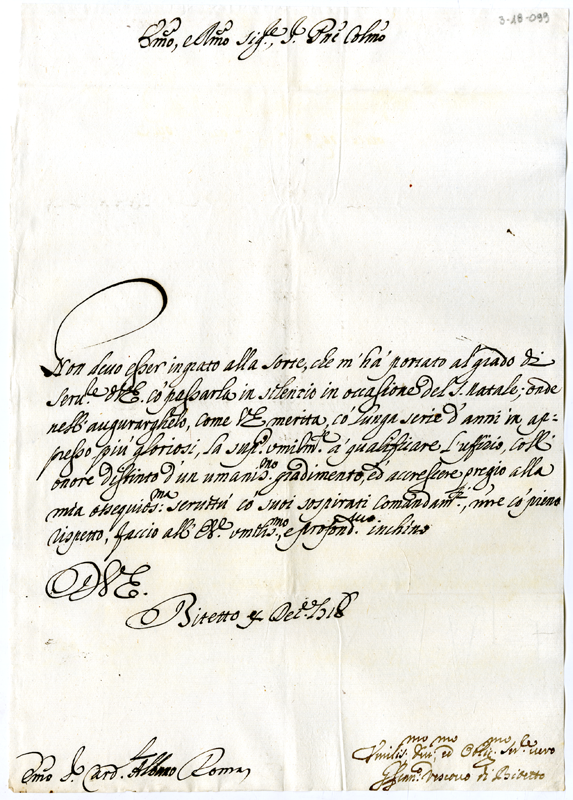 3-18-099
Emo, e Rmo Sigr, Sr Pne Colmo
Non devo esser ingrato alla sorte, che m'hà portato al grado di
Servre di V.E. có passarla in silencio in occasione del S. Natale; onde
nell'augurarghelo, come V.E. merita, có lunga serie d'anni in ap-
presso più gloriosi, la supco umilmte à qualificare l'uffizio, coll'
onore distinto d'un umanissmo gradimento, ed accrescere pregio alla
mia ossequiosma servitù có suoi sospirati comandamti, mre có pieno
rispetto, faccio all'E.V. umilissmo, e profondmo inchino
Di V.E.
Bitetto Xbre 1718
Emo Sr Card. Albano Roma
Umilismo Divmo ed Obligmo Servre vero
Vescovo di Bitetto